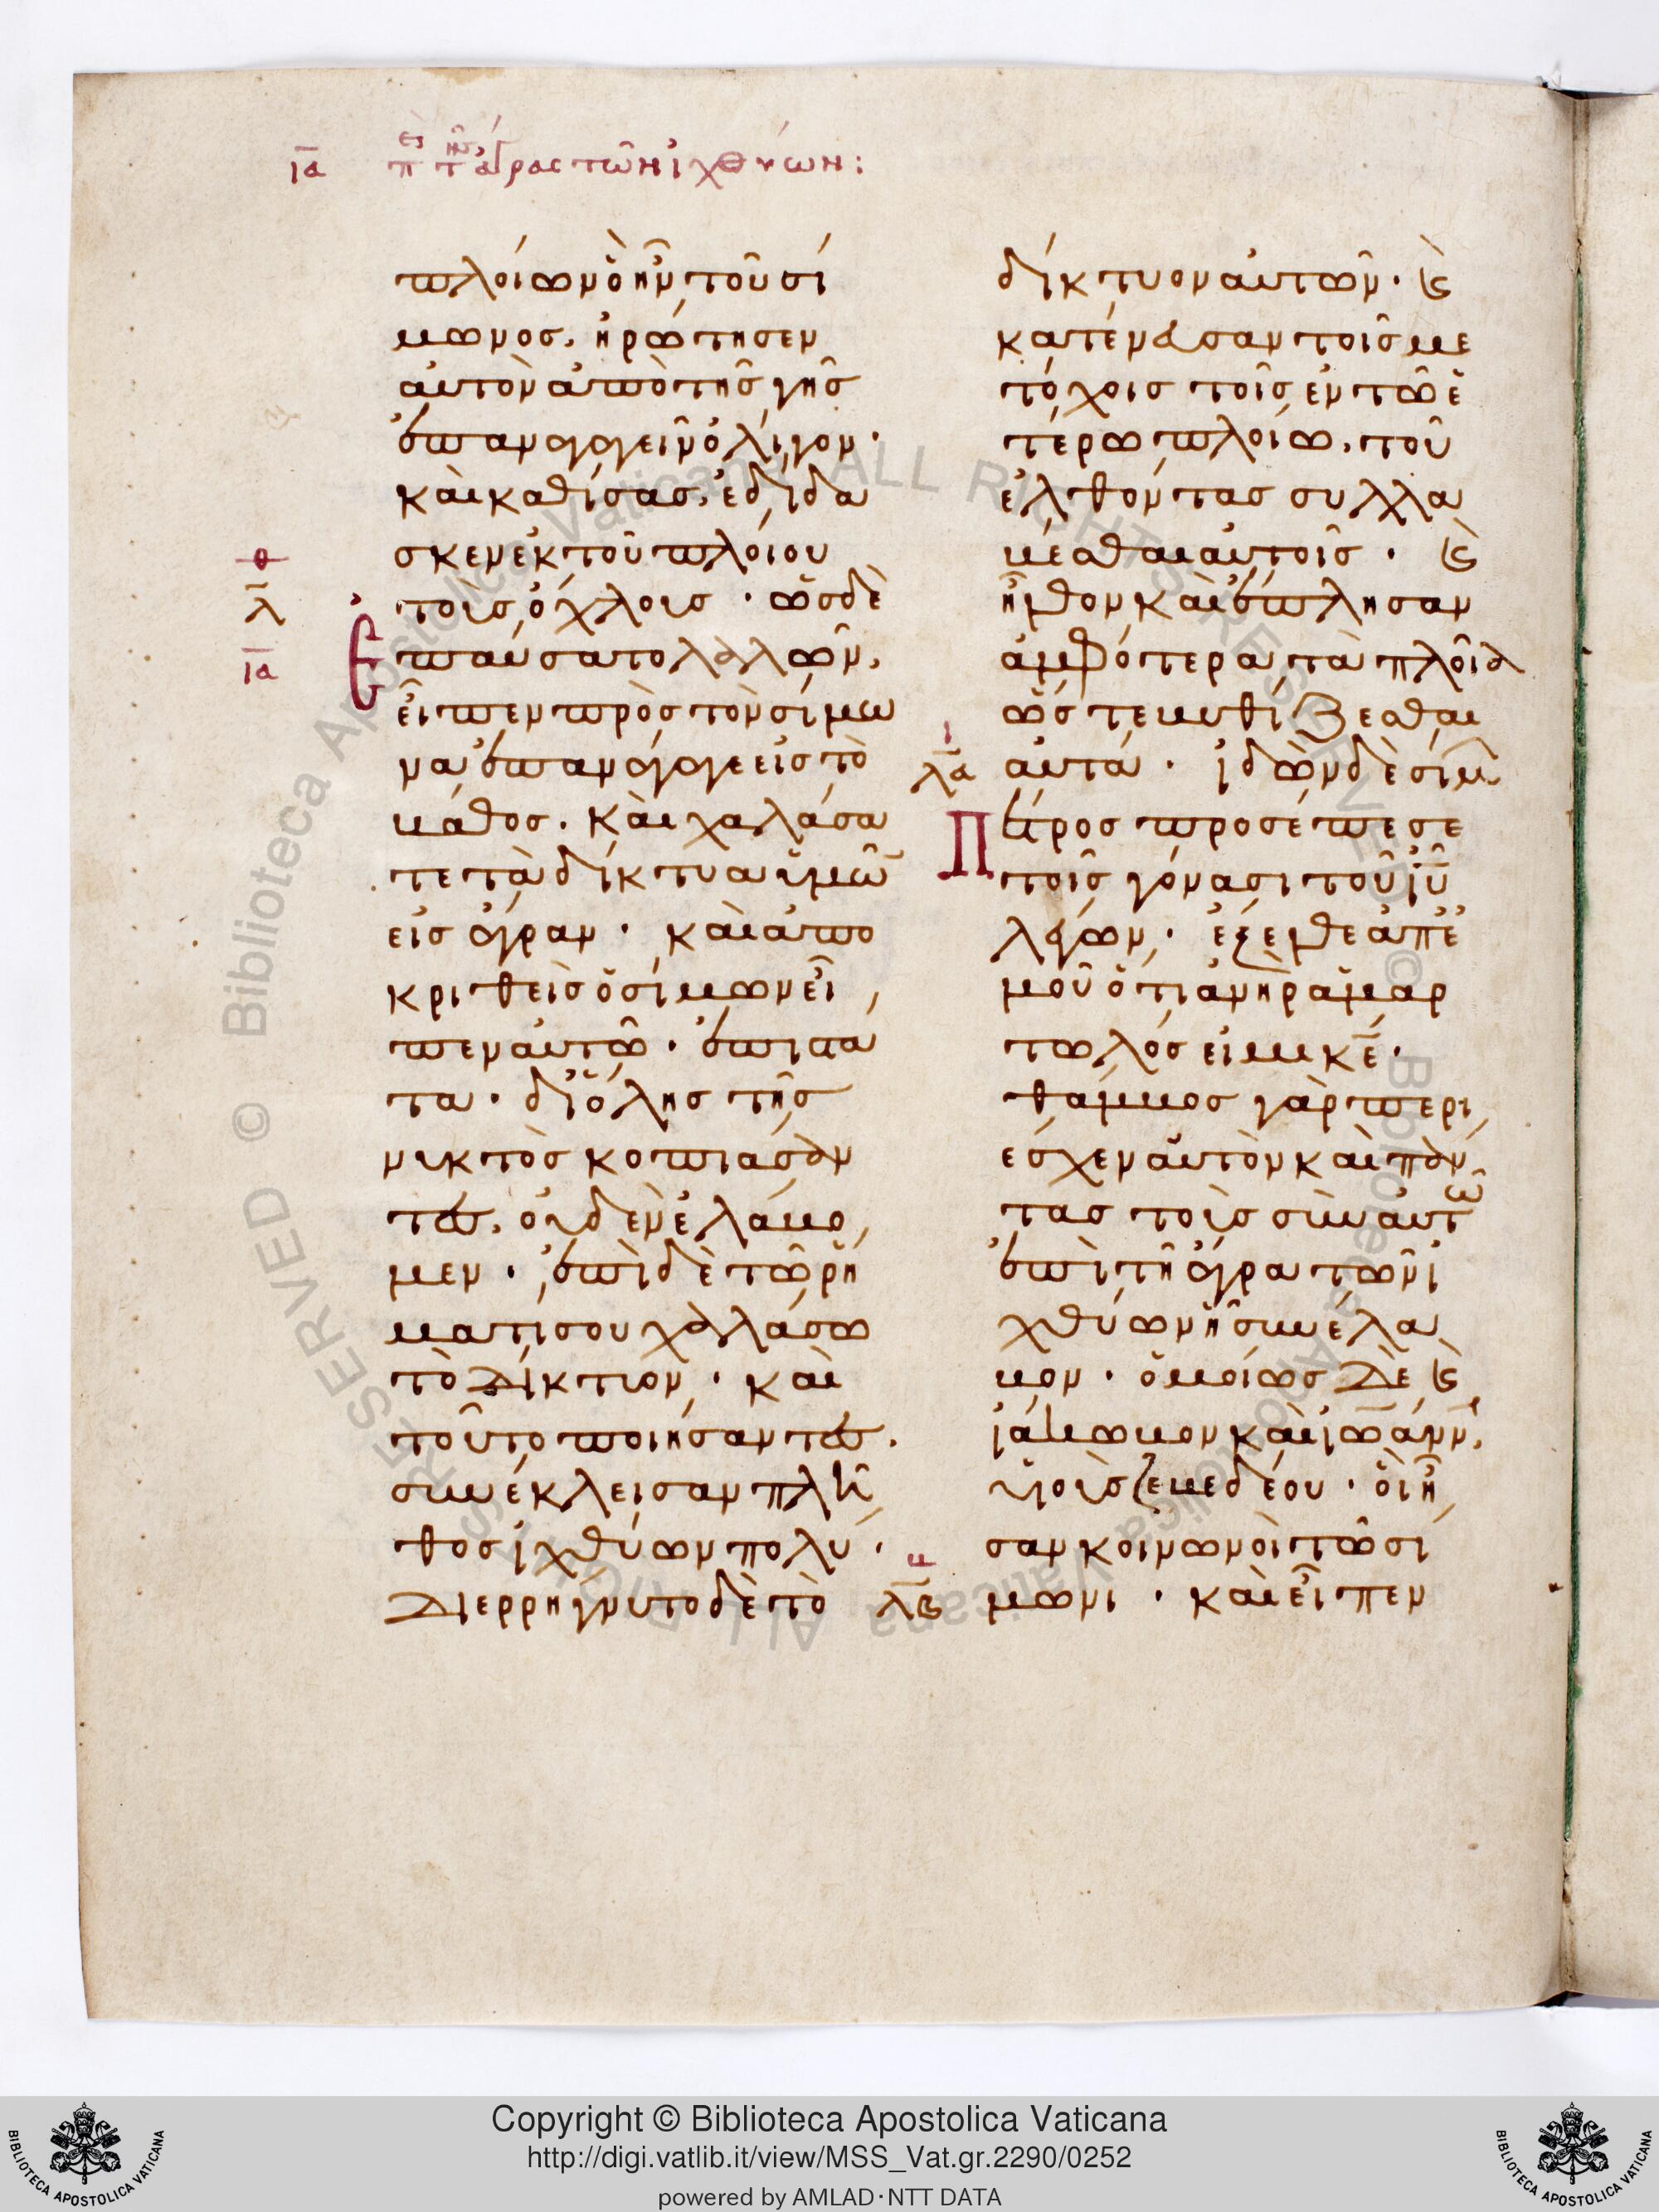 ια περὶ τῆς ἄγρας τῶν ἰχθύων:
πλοίων ὃ ἦν τοῦ σί
μωνος. ἠρώτησεν
αὐτὸν ἀπὸ τῆς γῆς
ἐπαναγαγεῖν ὀλίγον·
καὶ καθίσας, ἐδίδα
σκεν ἐκ τοῦ πλοίου
τοὺς ὄχλους · ὡς δὲ
ἐπαύσατο λαλῶν,
εἶπεν πρὸς τὸν σίμω
να ἐπανάγαγε εἰς τὸ
βάθος. καὶ χαλάσα
τε τὰ δίκτυα ὑμῶν
εἰς ἄγραν · καὶ ἀπο
κριθεὶς ὁ σίμων εἶ
πεν αὐτῶ · ἐπιστά
τα · δι' ὅλης τῆς
νυκτὸς κοπιάσαν
τες, οὐδὲν ἐλάβο
μεν · ἐπὶ δὲ τῶ ρή
ματι σου χαλάσω
τὸ δίκτυον · καὶ
τοῦτο ποιήσαντες.
συνέκλεισαν πλῆ
θος ἰχθύων πολύ ·
διερρήγνυτο δὲ τὸ
θ
λ
ια
δίκτυον αὐτῶν · ϗ
κατένευσαν τοῖς με
τόχοις τοῖς ἐν τῶ ἑ
τέρω πλοίω, τοῦ
ἐλθόντας συλλα
βέσθαι αὐτοῖς · ϗ
ἦλθον καὶ ἔπλησαν
ἀμφότερα τὰ πλοῖα
ὥστε βυθίζεσθαι
αὐτά · ἰδὼν δὲ σίμων
Πέτρος προσέπεσε
τοῖς γόνασι τοῦ ἰυ
λέγων · ἔξελθε ἀπ' ἐ
μοῦ ὅτι ἀνὴρ ἁμαρ
τωλός εἰμι κε ·
θάμβος γὰρ περι
έσχεν αὐτὸν καὶ πάν
τας τοὺς σὺν αὐτῶ
ἐπὶ τῆ ἄγρα τῶν ἰ
χθύων ἧ συνέλα
βον · ὁμοίως δὲ ϗ
ἰάκωβον καὶ ἰωάνν,
υἱοὺς ζεβεδέου · οἳ ἦ
σαν κοινωνοὶ τῶ σί
μωνι · καὶ εἶπεν
ι
λα
λβ
BIBLIOTECA APOSTOLICA VATICANA
Copyright © Biblioteca Apostolica Vaticana
http://digi.vatlib.it/view/MSS_Vat.gr.2290/0252
powered by AMLAD·NTT DATA
BIBLIOTECA APOSTOLICA VATICANA
© Biblioteca Apostolica Vaticana ALL RIGHTS RESERVED